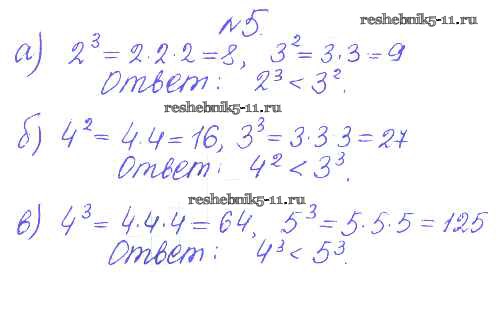 reshebnik5-11.ru
№5.
а) 2³ = 2·2·2 = 8, 3² = 3·3 = 9
Ответ: 2³ < 3².
reshebnik5-11.ru
б) 4² = 4·4 = 16, 3³ = 3·3 3 = 27
Ответ: 4² < 3³.
reshebnik5-11.ru
в) 4³ = 4·4·4 = 64, 5³ = 5·5·5 = 125
Ответ: 4³ < 5³.